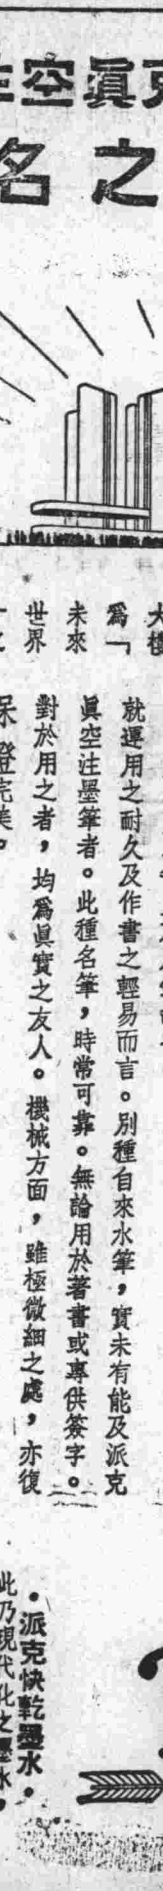 克眞空
之名
大樓
爲「
未來
世界
就運用之耐久及作書之輕易而言。別種自來水筆，實未有能及派克
眞空注墨筆者。此種名筆，時常可靠。無論用於著書或專供簽字。
對於用之者，均爲眞實之友人。機械方面，雖極微細之處，亦復
澄完美。
•派克快乾墨水•
此乃現代化之墨水，